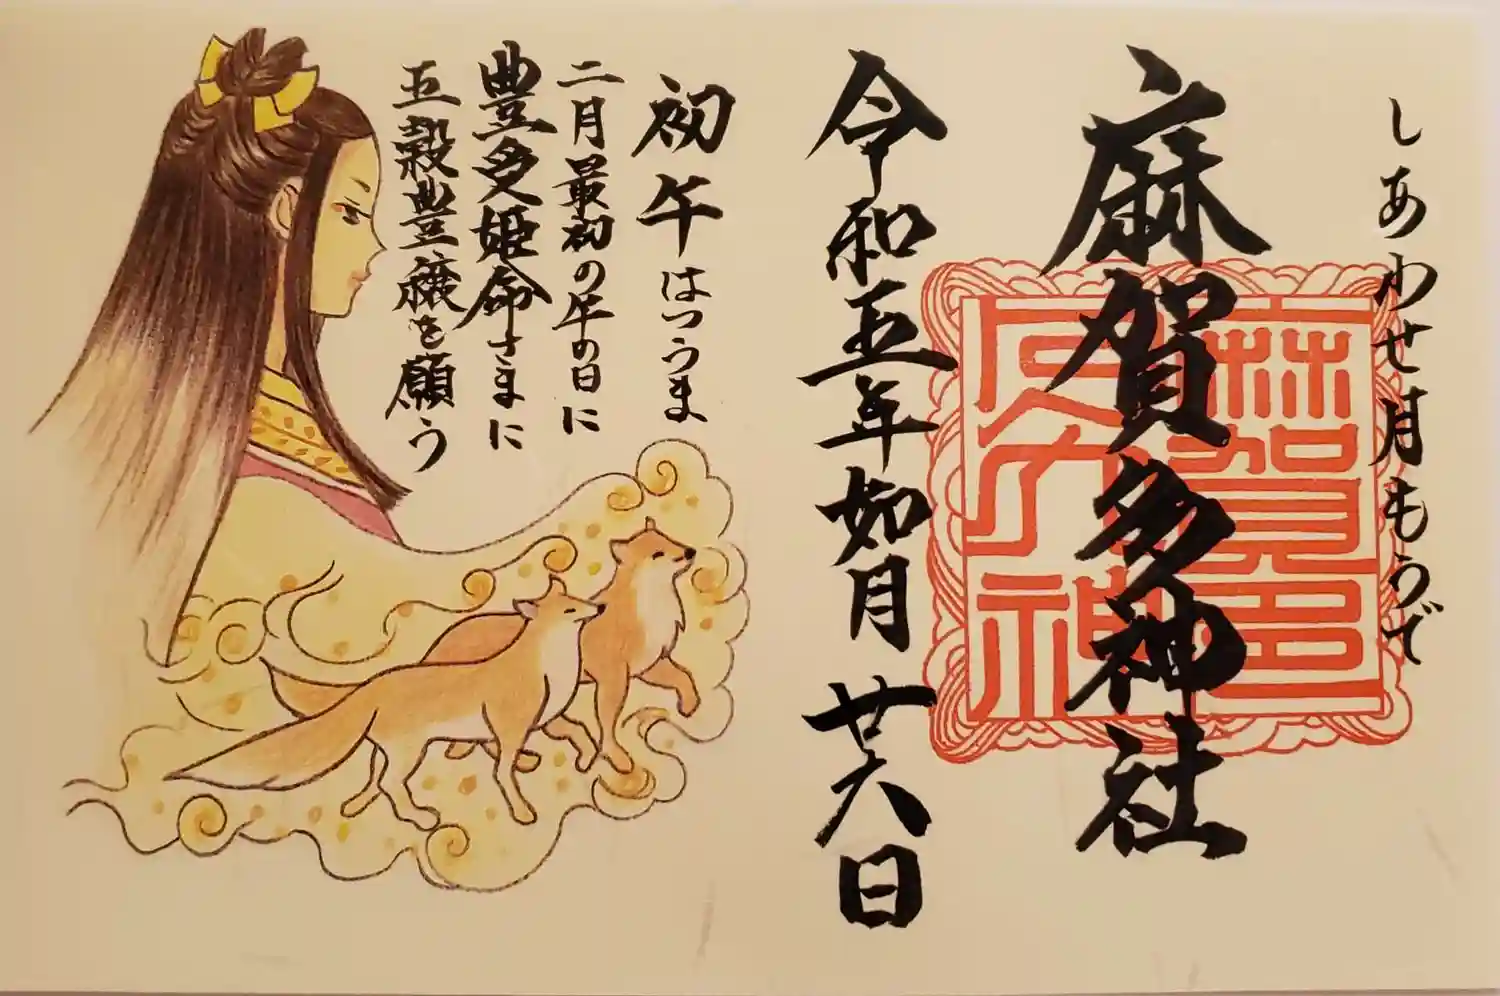 しあわせ月もうで
麻賀多神社
令和五年如月廿六日
初午はつうま
二月最初の午の日に
豊多姫命さまに
五穀豊穣を願う